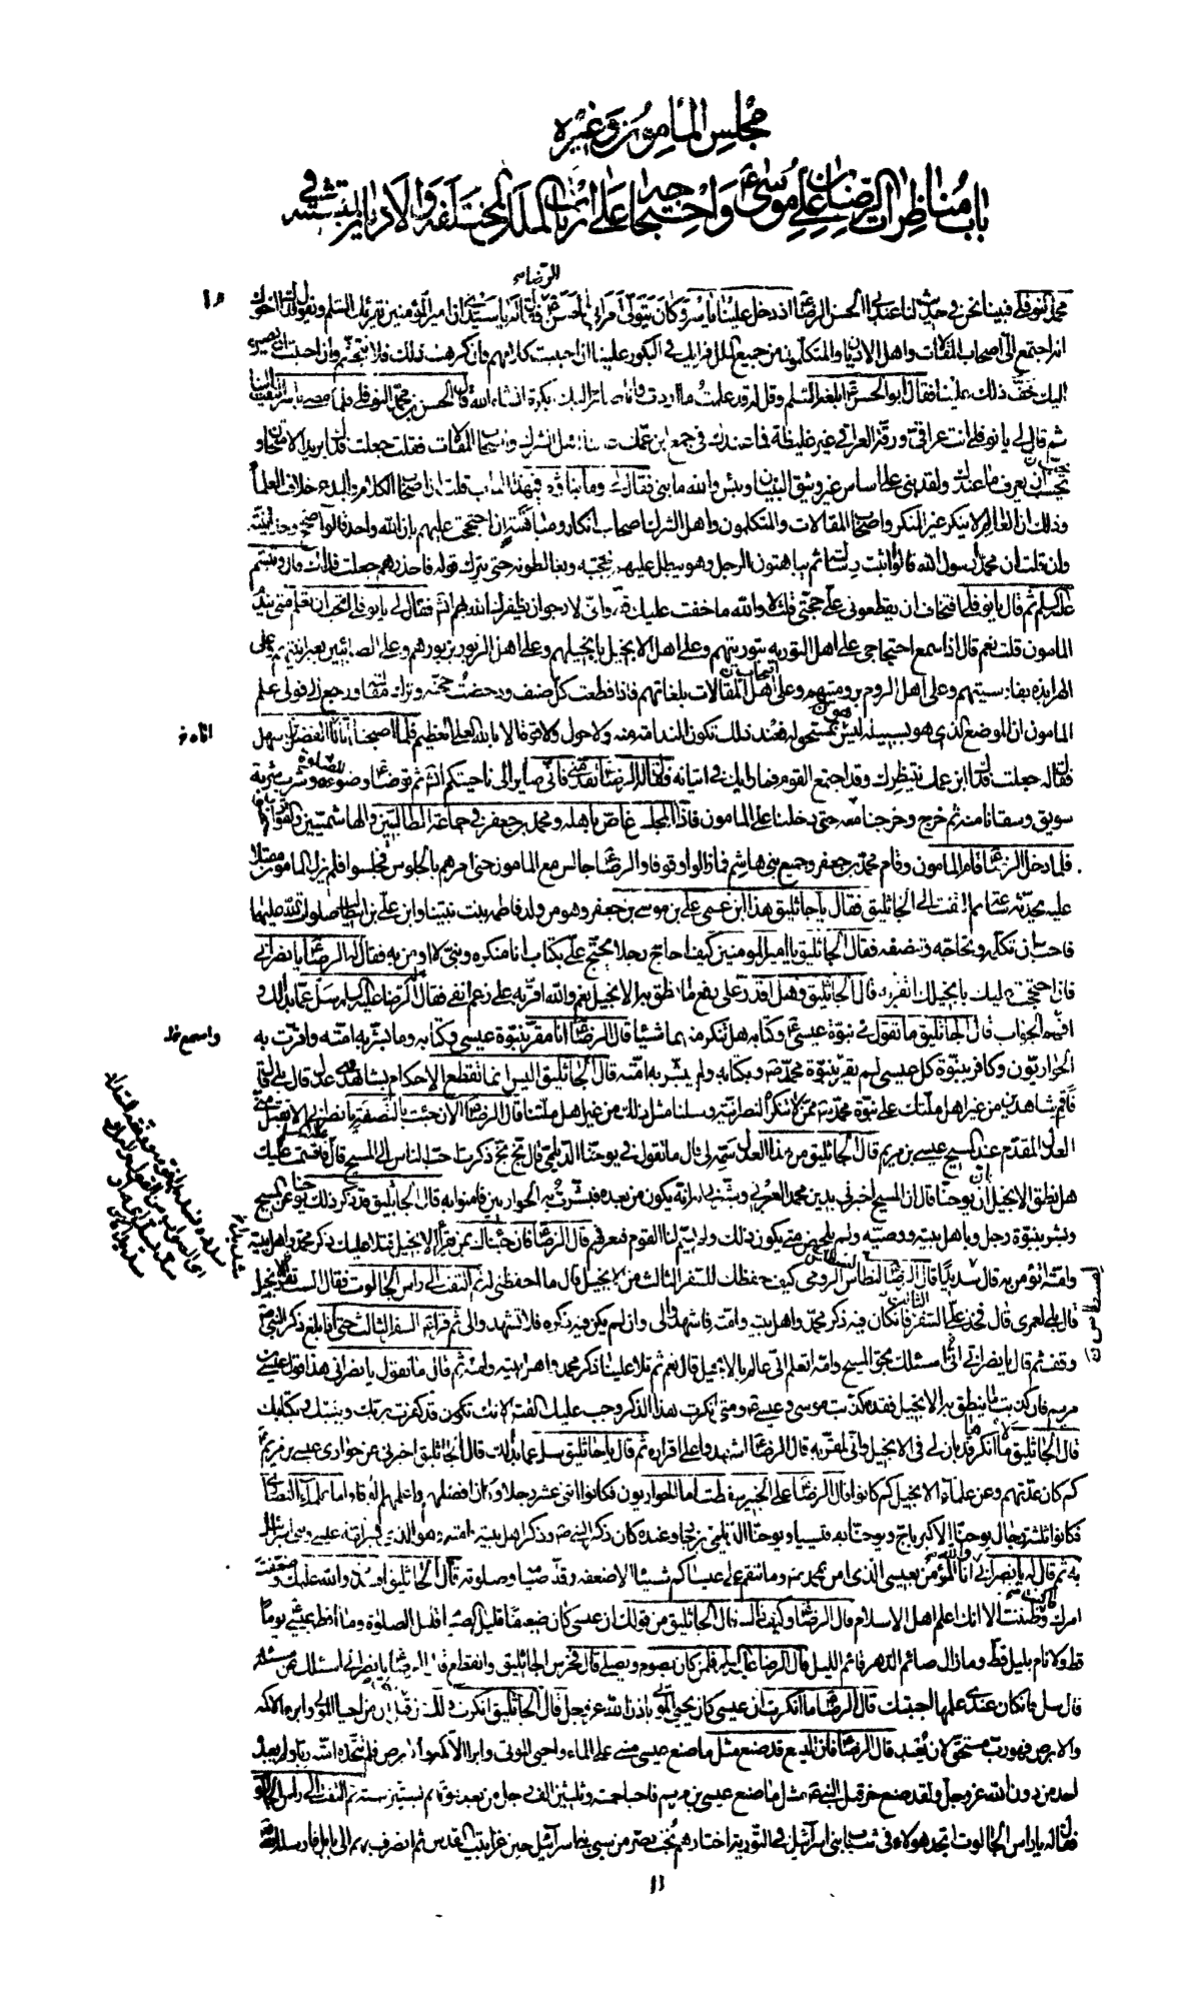 مجلس المأمون وغيره
باب مناظرات الرضا علي بن موسى ع واحتجاجه على أرباب الملل المختلفة والأديان المتشتتة في
محمد النوفلي فبينا نحن في حديث لنا عند أبي الحسن الرضا ع اذ دخل علينا ياسر وكان يتولى أمر أبي الحسن ع فقال له يا سيدي ان امير المؤمنين يقرئك السلم ويقول فداك اخوك
انه اجتمع الي اصحاب المقالات واهل الاديان والمتكلمون من جميع الملل فرأيك في البكور علينا ان احببت كلامهم وان كرهت ذلك فلا تتجشم وان احببت ان نصير
اليك خف ذلك علينا فقال ابو الحسن ع ابلغه السلم وقل له قد علمت ما اردت وانا صائر اليك بكرة انشاء الله قال الحسن بن محمد النوفلي فلما مضى ياسر التفت الينا
ثم قال لي يا نوفلي انت عراقي ورقة العراقي غير غليظة فما عندك في جمع ابن عمك علينا اهل الشرك واصحاب المقالات فقلت جعلت فداك يريد الامتحان و
يحب ان يعرف ما عندك ولقد بنى على اساس غير وثيق البنيان وبئس والله ما بنى فقال لي وما بناؤه في هذا الباب قلت ان اصحاب الكلام والبدع خلاف العلماء
وذلك ان العالم لا ينكر غير المنكر واصحاب المقالات والمتكلمون واهل الشرك اصحاب انكار ومباهتة ان احتججت عليهم بان الله واحد قالوا صحح وحدانيته
وان قلت ان محمدا رسول الله قالوا اثبت رسالته ثم يباهتون الرجل وهو يبطل عليهم بحجته ويغالطونه حتى يترك قوله فاحذرهم جعلت فداك قال فتبسم
عليه السلم ثم قال يا نوفلي افتخاف ان يقطعوني على حجتي قلت لا والله ما خفت عليك قط واني لارجو ان يظفرك الله بهم انشاء الله فقال لي يا نوفلي اتحب ان تعلم متى يندم
المأمون قلت نعم قال اذا سمع احتجاجي على اهل التورية بتوريتهم وعلى اهل الانجيل بانجيلهم وعلى اهل الزبور بزبورهم وعلى الصابئين بعبرانيتهم وعلى
الهرابذة بفارسيتهم وعلى اهل الروم بروميتهم وعلى اهل المقالات بلغاتهم فاذا قطعت كل صنف ودحضت حجته وترك مقالته ورجع الى قولي علم
المامون ان الموضع الذي هو بسبيله ليس بمستحق له فعند ذلك تكون الندامة منه ولا حول ولا قوة الا بالله العلي العظيم فلما اصبحنا اتانا الفضل بن سهل
فقال له جعلت فداك ابن عمك ينتظرك وقد اجتمع القوم فما رأيك في اتيانه فقال له الرضا ع تقدمني فاني صائر الى ناحيتكم انشاء الله ثم توضأ ع وضوءه للصلوة وشرب شربة
سويق وسقانا منه ثم خرج وخرجنا معه حتى دخلنا على المامون فاذا المجلس غاص باهله ومحمد بن جعفر في جماعة الطالبيين والهاشميين والقواد
فلما دخل الرضا ع قام المامون وقام محمد بن جعفر وجميع بني هاشم فما زالوا وقوفا والرضا ع جالس مع المامون حتى امرهم بالجلوس فجلسوا فلم يزل المامون مقبلا
عليه يحدثه ساعة ثم التفت الى الجاثليق فقال يا جاثليق هذا ابن عمي علي بن موسى بن جعفر وهو من ولد فاطمة بنت نبينا وابن علي بن ابيطالب صلوات الله عليهما
فاحب ان تكلمه وتحاجه وتنصفه فقال الجاثليق يا امير المومنين كيف احاج رجلا يحتج علي بكتاب انا منكره ونبي لا اومن به فقال له الرضا ع يا نصراني
فان احتججت عليك بانجيلك اتقر به قال الجاثليق وهل اقدر على دفع ما نطق به الانجيل نعم والله اقر به على رغم انفي فقال له الرضا عليه السلم سل عما بدا لك و
افهم الجواب قال الجاثليق ما تقول في نبوة عيسى ع وكتابه هل تنكر منهما شيئا قال الرضا ع انا مقر بنبوة عيسى وكتابه وما بشر به امته واقرت به
الحواريون وكافر بنبوة كل عيسى لم يقر بنبوة محمد ص وبكتابه ولم يبشر به امته قال الجاثليق اليس انما تقطع الاحكام بشاهدي عدل قال بلى قال
فاقم شاهدين من غير اهل ملتك على نبوة محمد ص ممن لا تنكره النصرانية وسلنا مثل ذلك من غير اهل ملتنا قال الرضا ع الان جئت بالنصفة يا نصراني الا تقبل مني
العدل المقدم عند المسيح عيسى بن مريم قال الجاثليق من هذا العدل سمه لي قال ما تقول في يوحنا الديلمي قال بخ بخ ذكرت احب الناس الى المسيح قال فاقسمت عليك
هل نطق الانجيل ان يوحنا قال ان المسيح اخبرني بدين محمد العربي وبشرني به انه يكون من بعده فبشرت به الحواريين فامنوا به قال الجاثليق قد ذكر ذلك يوحنا عن المسيح
وبشر بنبوة رجل وباهل بيته ووصيه ولم يلخص متى يكون ذلك ولم يسم لنا القوم فنعرفهم قال الرضا ع فان جئناك بمن يقرأ الانجيل فتلا عليك ذكر محمد واهل بيته
وامته اتؤمن به قال سديدا قال الرضا ع لنسطاس الرومي كيف حفظك للسفر الثالث من الانجيل قال ما احفظني له ثم التفت الى راس الجالوت فقال الست تقرء الانجيل
قال بلى لعمري قال فخذ علي السفر فان كان فيه ذكر محمد واهل بيته وامته فاشهدوا لي وان لم يكن فيه ذكره فلا تشهدوا لي ثم قرأ ع السفر الثالث حتى اذا بلغ ذكر النبي ص
وقف ثم قال يا نصراني اني اسئلك بحق المسيح وامه اتعلم اني عالم بالانجيل قال نعم ثم تلا علينا ذكر محمد واهل بيته وامته ثم قال ما تقول يا نصراني هذا قول عيسى بن
مريم فان كذبت ما ينطق به الانجيل فقد كذبت موسى وعيسى ع ومتى انكرت هذا الذكر وجب عليك القتل لانك تكون قد كفرت بربك وبنبيك وبكتابك
قال الجاثليق لا انكر ما قد بان لي في الانجيل واني لمقر به قال الرضا ع اشهدوا على اقراره ثم قال يا جاثليق سل عما بدا لك قال الجاثليق اخبرني عن حواري عيسى بن مريم
كم كان عدتهم وعن علماء الانجيل كم كانوا قال الرضا ع على الخبير سقطت اما الحواريون فكانوا اثنى عشر رجلا وكان افضلهم واعلمهم الوقا واما علماء النصارى
فكانوا ثلثة رجال يوحنا الاكبر باج ويوحنا بقرقيسيا ويوحنا الديلمي بزجار وعنده كان ذكر النبي ص وذكر اهل بيته وامته وهو الذي بشر امة عيسى وبني اسرائيل
به ثم قال له يا نصراني والله انا لنؤمن بعيسى الذي امن بمحمد ص وما ننقم على عيساكم شيئا الا ضعفه وقلة صيامه وصلوته قال الجاثليق افسدت والله علمك وضعفت
امرك وما كنت ظننت الا انك اعلم اهل الاسلام قال الرضا ع وكيف ذلك قال الجاثليق من قولك ان عيسى كان ضعيفا قليل الصيام قليل الصلوة وما افطر عيسى يوما
قط ولا نام بليل قط وما زال صائم الدهر قائم الليل قال الرضا عليه السلم فلمن كان يصوم ويصلي قال فخرس الجاثليق وانقطع قال الرضا ع يا نصراني اسئلك عن مسئلة
قال سل فان كان عندي علمها اجبتك قال الرضا ع ما انكرت ان عيسى كان يحيي الموتى باذن الله عز وجل قال الجاثليق انكرت ذلك من قبل ان من احيا الموتى وابرء الاكمه
والابرص فهو رب مستحق لان يعبد قال الرضا ع فان اليسع قد صنع مثل ما صنع عيسى مشى على الماء واحيى الموتى وابرا الاكمه والابرص فلم تتخذه امته ربا ولم يعبده
احد من دون الله عز وجل ولقد صنع حزقيل النبي ع مثل ما صنع عيسى بن مريم فاحيا خمسة وثلثين الف رجل من بعد موتهم بستين سنة ثم التفت الى راس الجالوت
فقال له يا راس الجالوت اتجد هولاء في شباب بني اسرائيل في التورية اختارهم بخت نصر من سبي بني اسرائيل حين غزا بيت المقدس ثم انصرف بهم الى بابل فارسله الله
١١